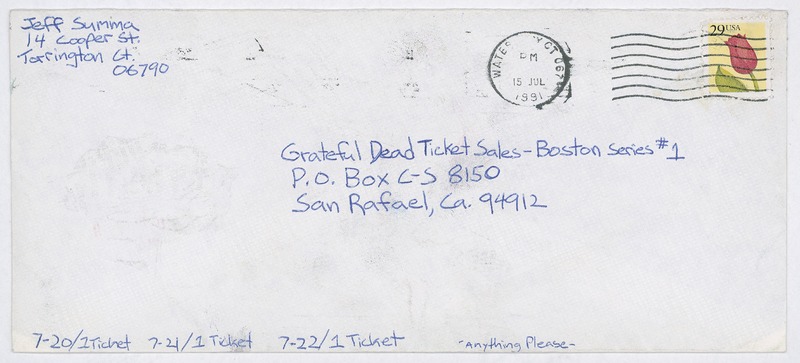 Jeff Summa
14 Cooper St.
Torrington Ct.
06790
WATERBURY CT 067
PM
15 JUL
1991
29 USA
Grateful Dead Ticket Sales - Boston series #1
P.O. Box C-S 8150
San Rafael, Ca. 94912
7-20/1 Ticket 7-21/1 Ticket 7-22/1 Ticket -Anything Please-